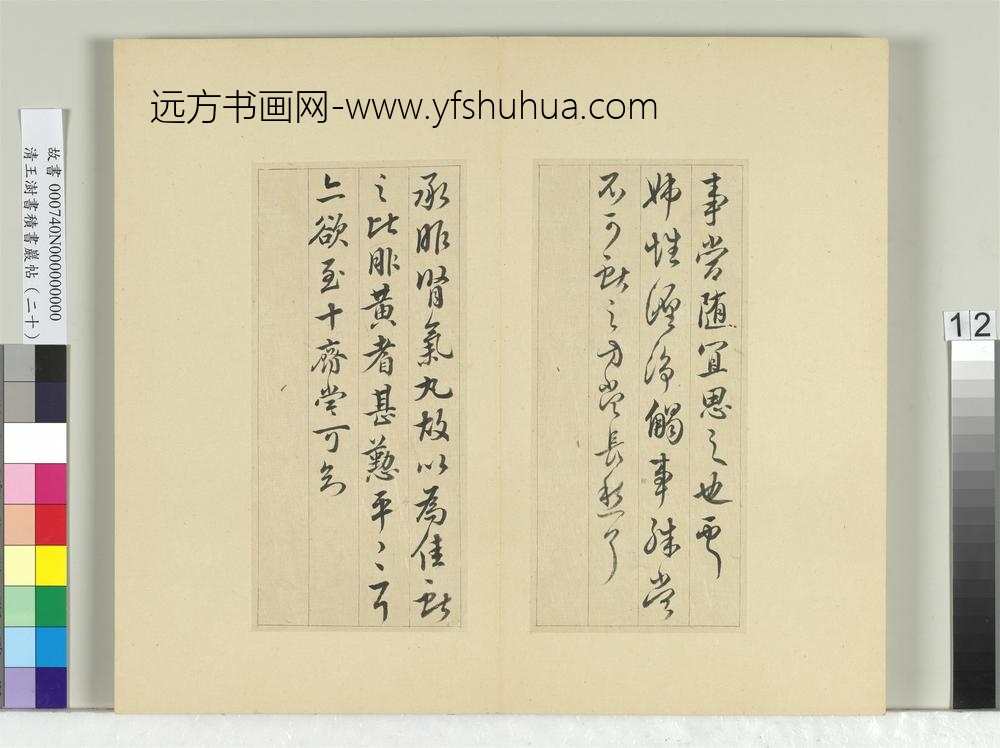 远方书画网-www.yfshuhua.com
故書 000740N000000000
清王澍書積書巖帖(二十)
12
事當隨宜思之也
姊性纏綿觸事殊當
不可獻之方當長愁耳
承服腎氣丸故以為佳獻
之比服黃耆甚懃平平耳
亦欲至十齊當可知